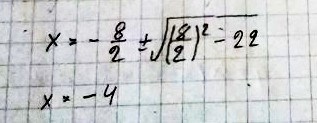 x = - 8/2 ± √(8/2)² - 22
x = -4